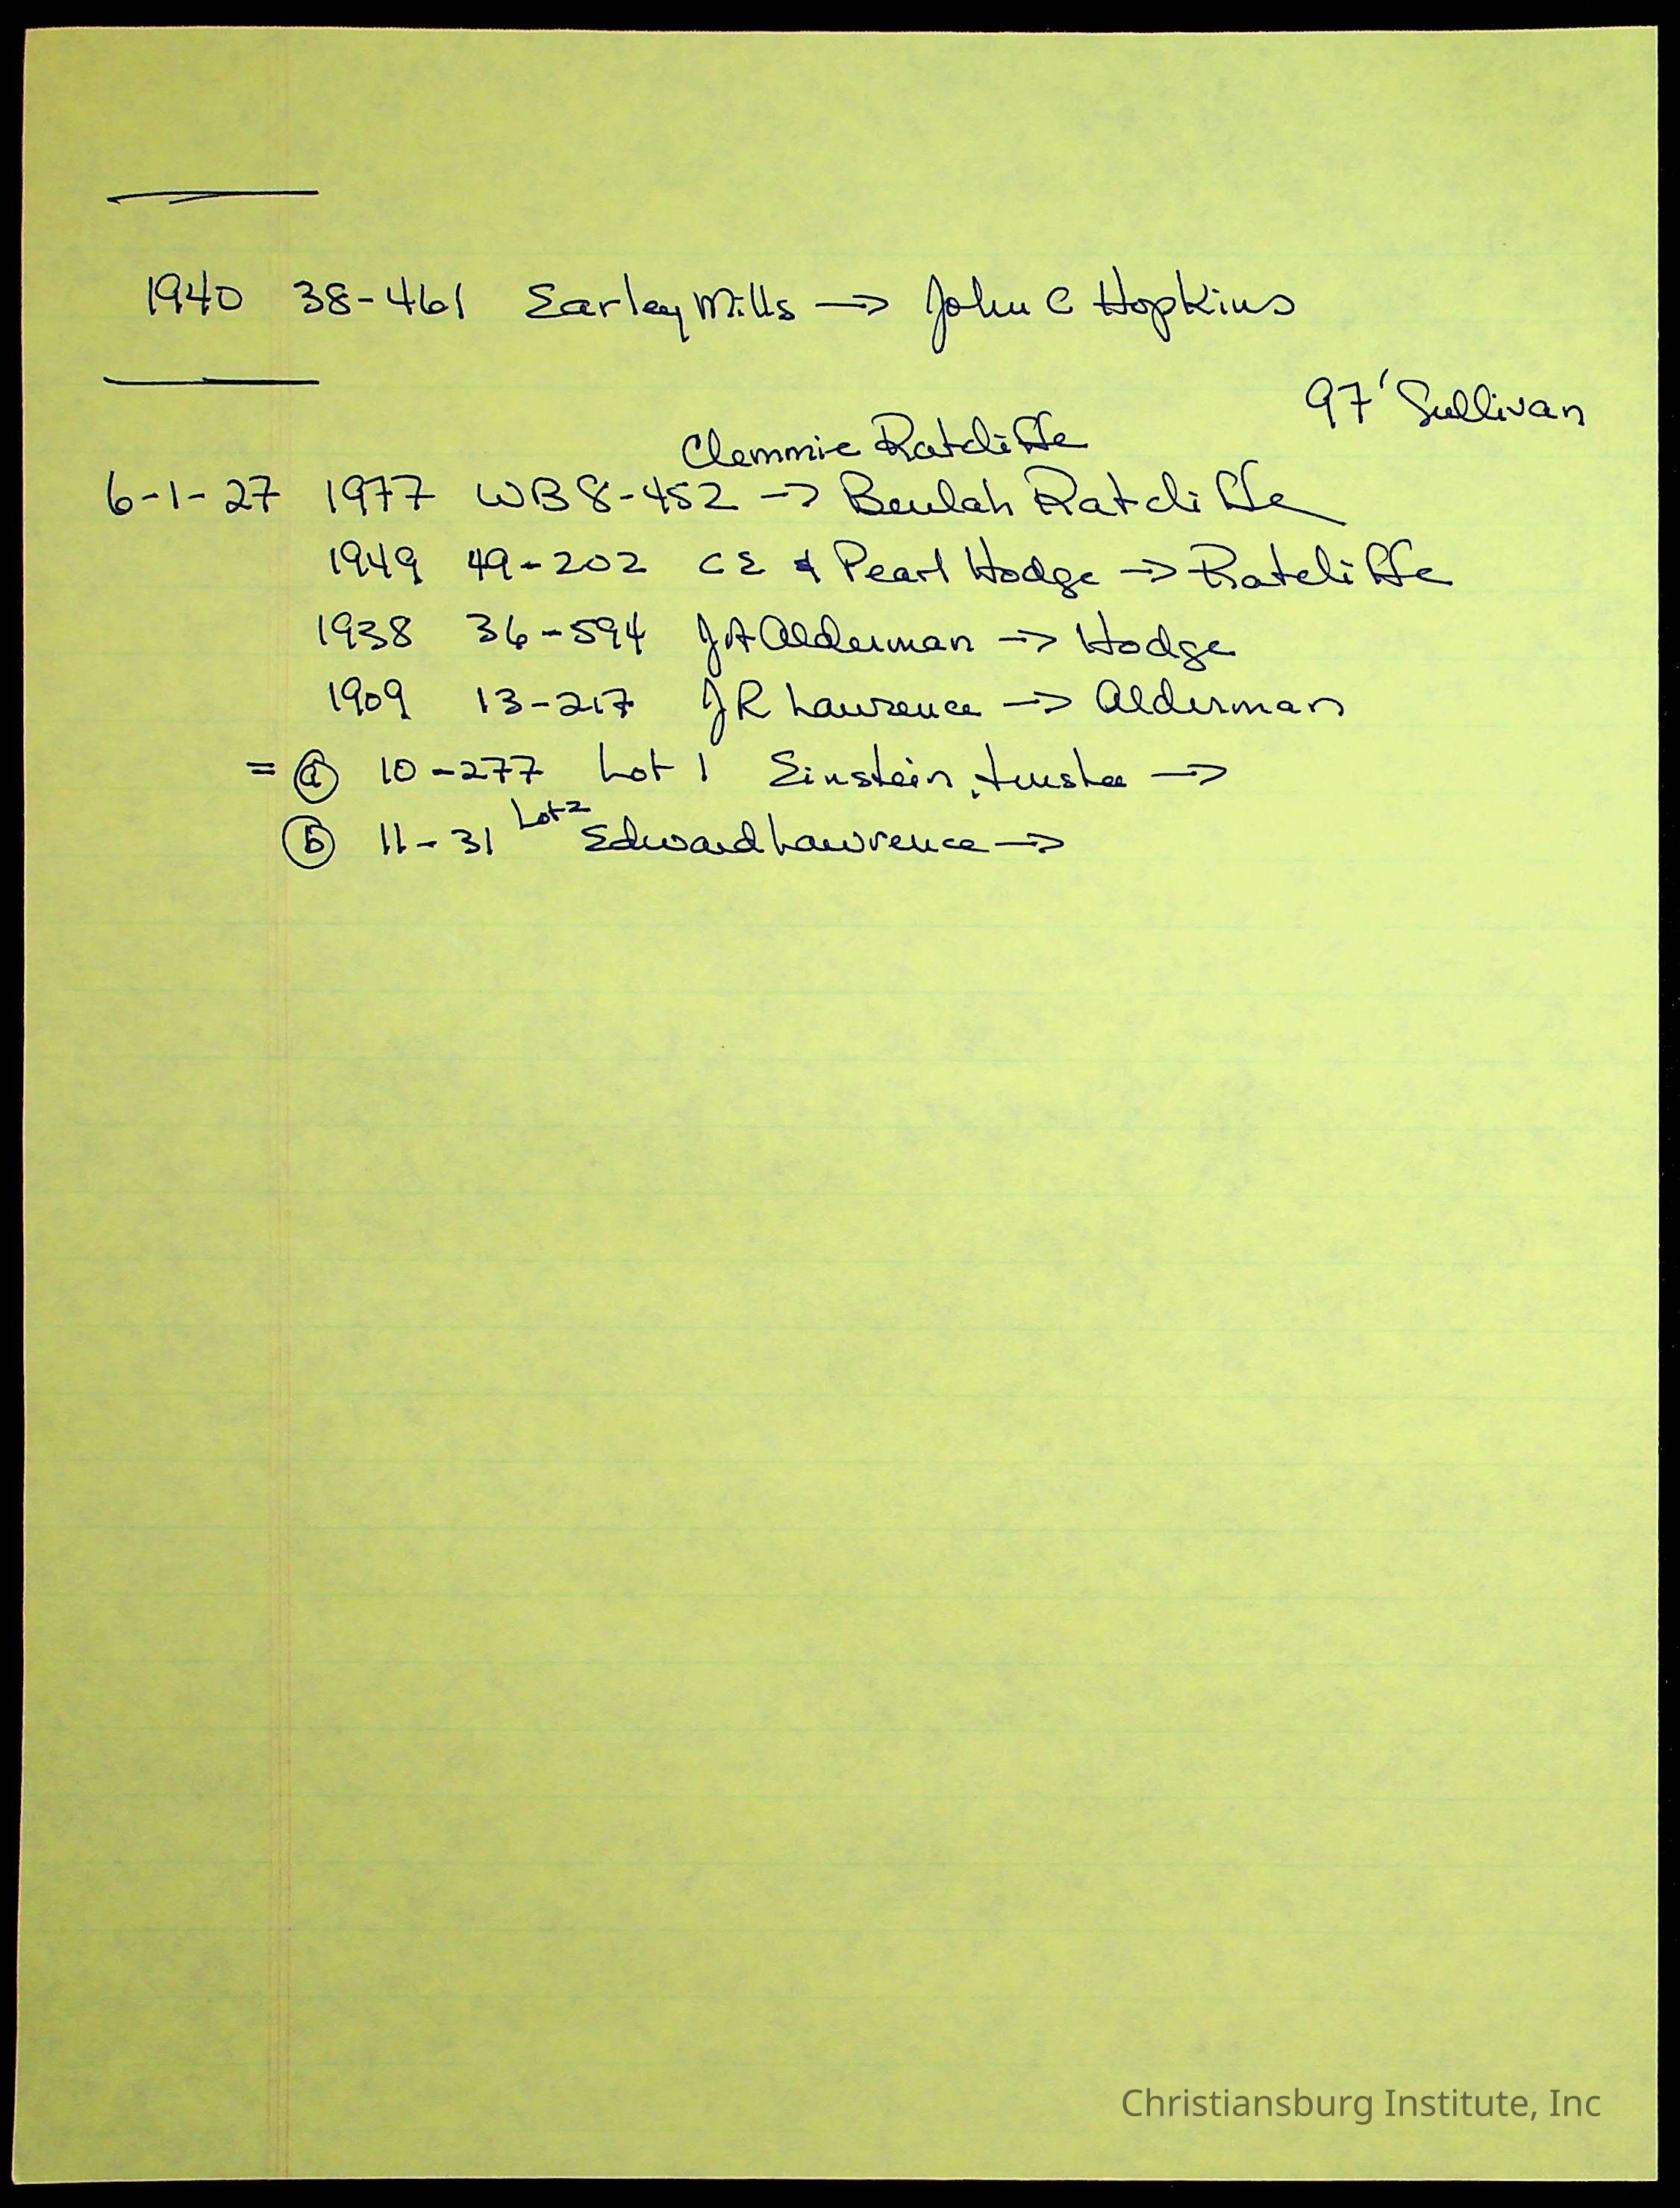 1940 38-461 Earley Mills → John C Hopkins
97' Sullivan
Clemmie Ratcliffe
6-1-27 1977 WB 8-452 → Beulah Ratcliffe
1949 49-202 CE & Pearl Hodge → Ratcliffe
1938 36-594 JA Alderman → Hodge
1909 13-217 JR Lawrence → Alderman
= ⓐ 10-277 Lot 1 Einstein, trustee →
ⓑ 11-31 Lot 2 Edward Lawrence →
Christiansburg Institute, Inc